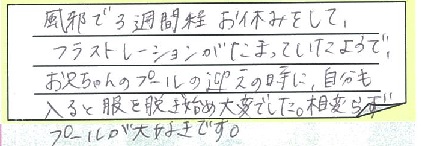 風邪で3週間程お休みをして、
フラストレーションがたまっていたようで、
お兄ちゃんのプールの迎えの時に、自分も
入ると服を脱ぎ始め大変でした。相変らず
プールが大好きです。